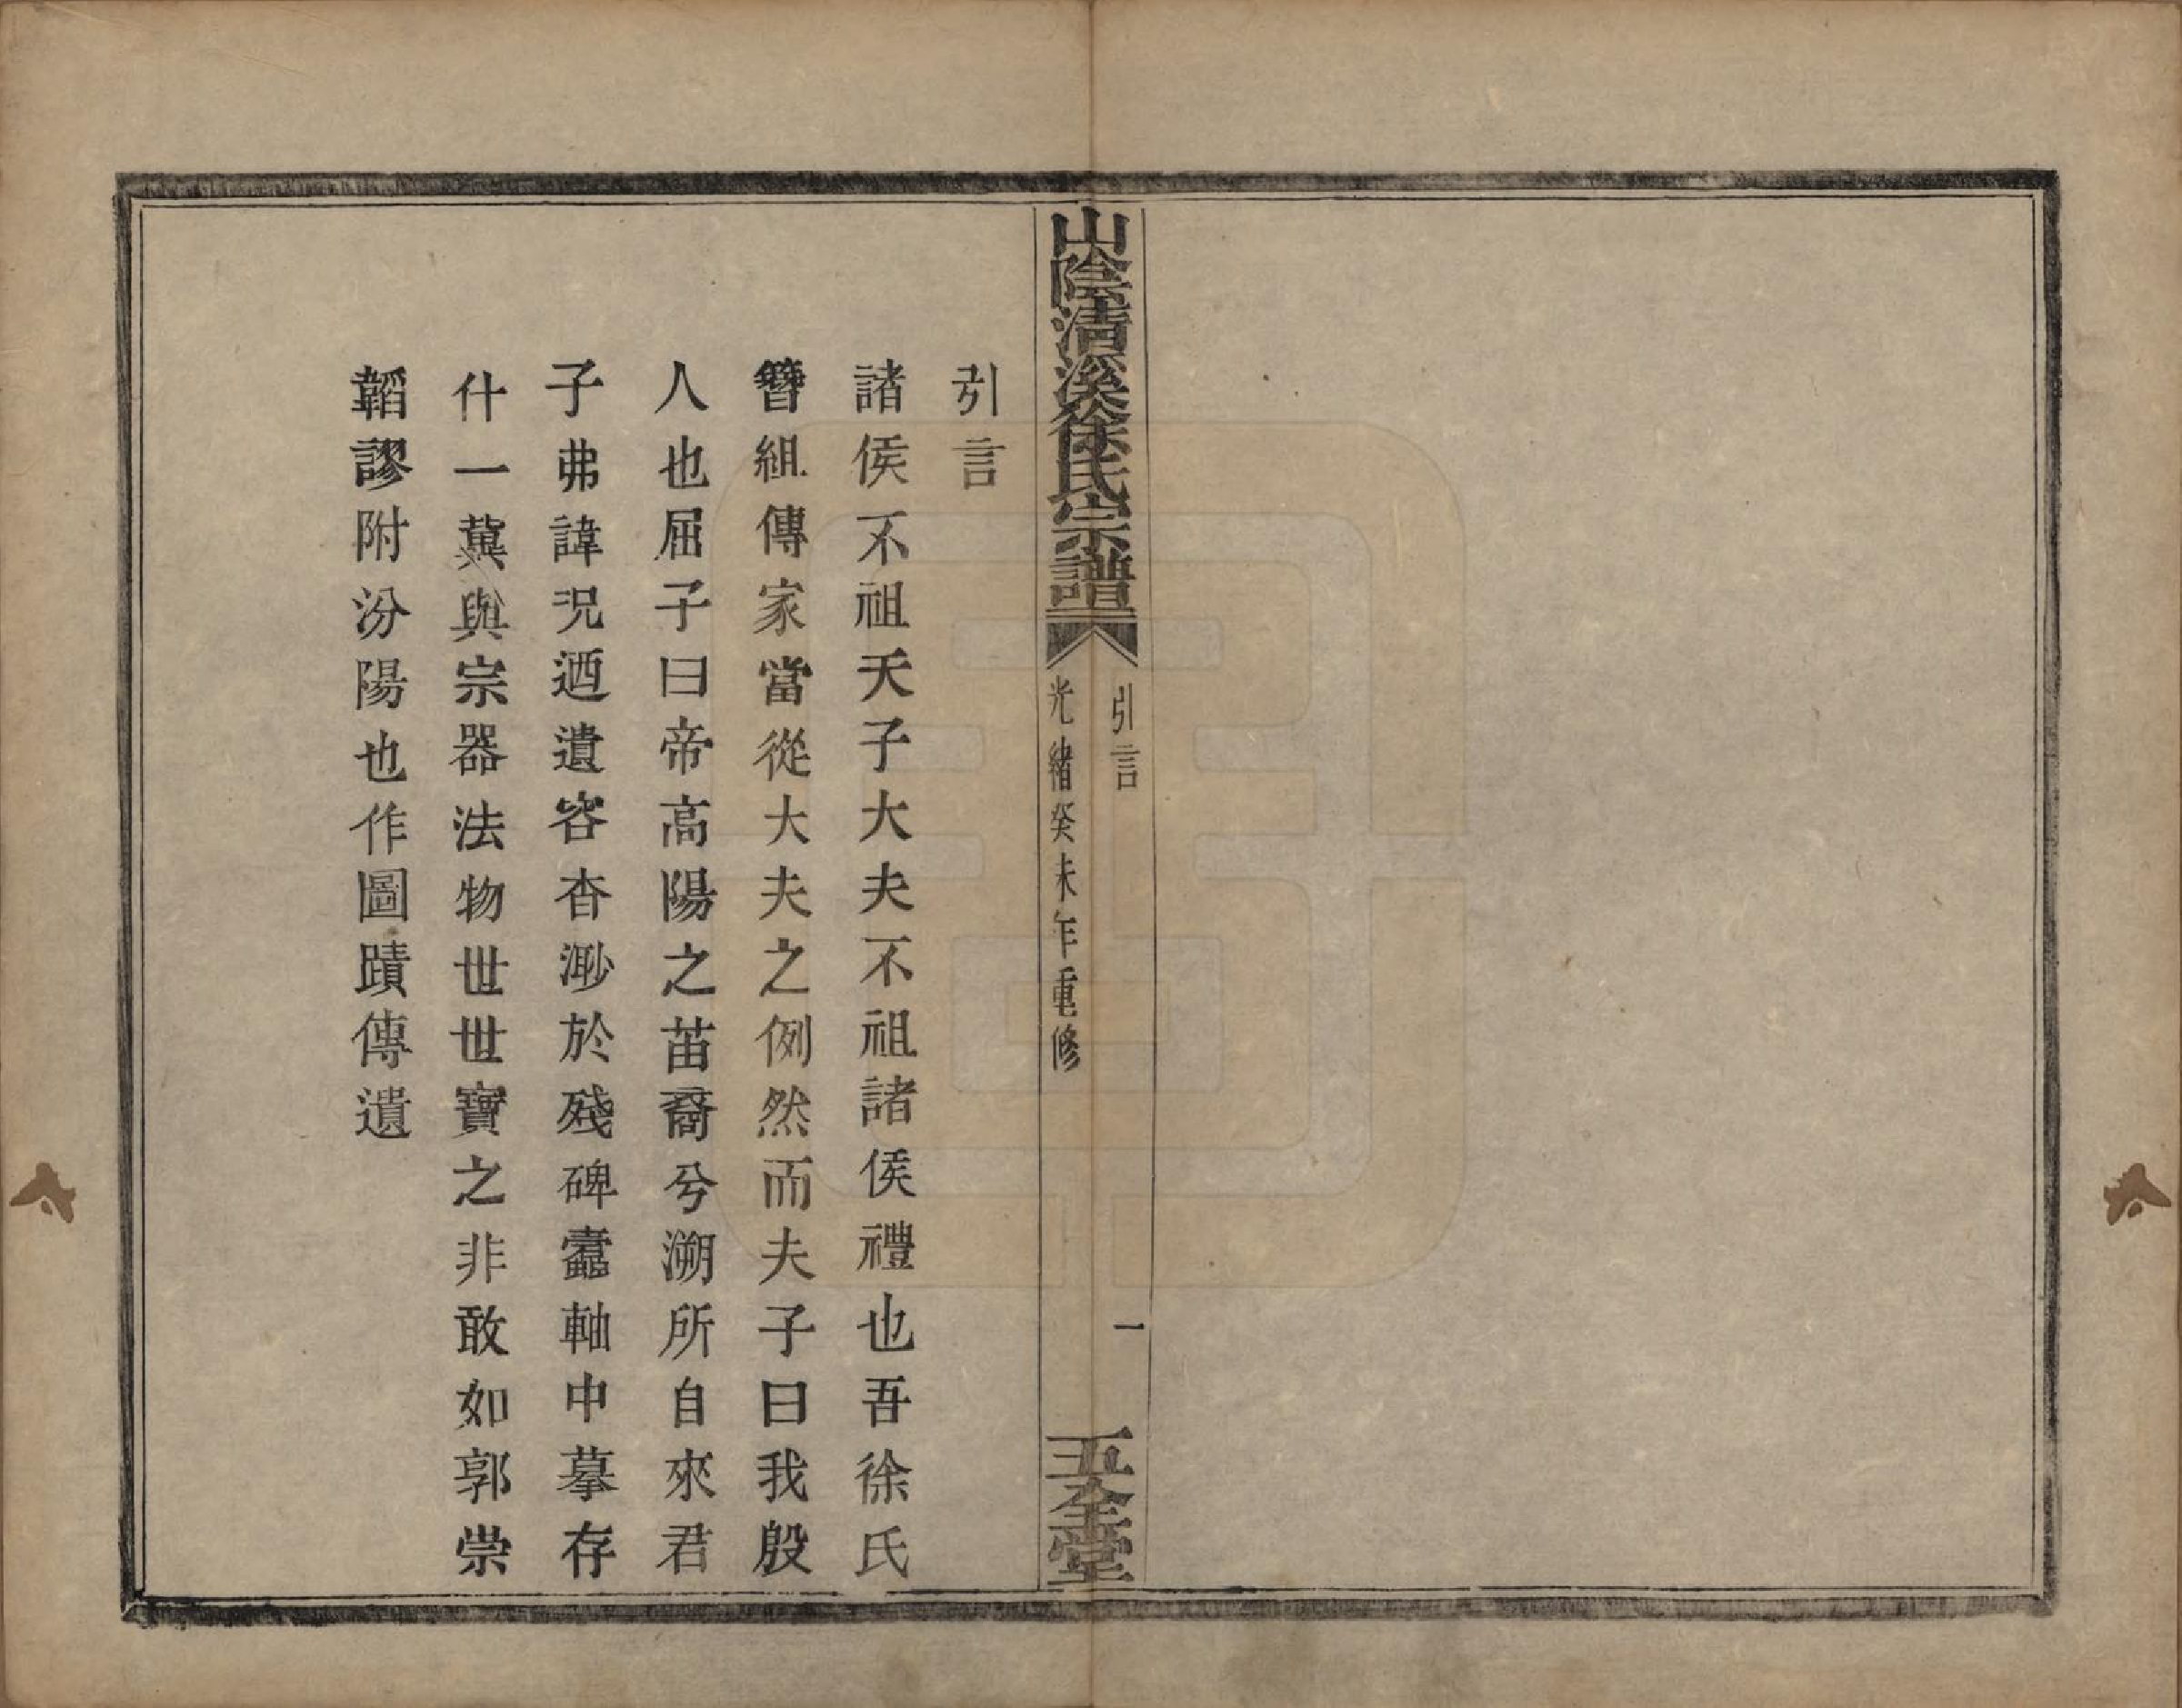 山陰清溪徐氏宗譜
引言
一
光緒癸未年重修
五全堂
引言
諸侯不祖天子大夫不祖諸侯禮也吾徐氏
簪組傳家當從大夫之例然而夫子曰我殷
人也屈子曰帝高陽之苗裔兮溯所自來君
子弗諱況迺遺容杳渺於殘碑蠹軸中摹存
什一冀與宗器法物世世寶之非敢如郭崇
韜謬附汾陽也作圖蹟傳遺